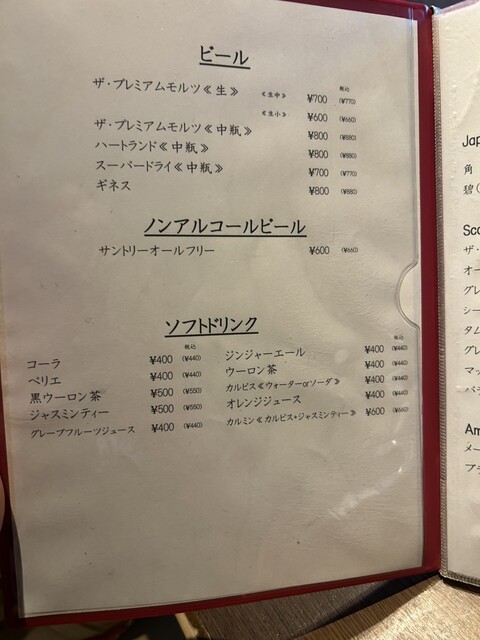 ビール
税込
ザ・プレミアムモルツ≪生≫ ≪生中≫ ¥700 (¥770)
≪生小≫ ¥600 (¥660)
ザ・プレミアムモルツ≪中瓶≫ ¥800 (¥880)
ハートランド≪中瓶≫ ¥800 (¥880)
スーパードライ≪中瓶≫ ¥700 (¥770)
ギネス ¥800 (¥880)
ノンアルコールビール
サントリーオールフリー ¥600 (¥660)
ソフトドリンク
税込
コーラ ¥400 (¥440)
ペリエ ¥400 (¥440)
黒ウーロン茶 ¥500 (¥550)
ジャスミンティー ¥500 (¥550)
グレープフルーツジュース ¥400 (¥440)
税込
ジンジャーエール ¥400 (¥440)
ウーロン茶 ¥400 (¥440)
カルピス≪ウォーターorソーダ≫ ¥400 (¥440)
オレンジジュース ¥400 (¥440)
カルミン≪カルピス+ジャスミンティー≫ ¥600 (¥660)
Jap
角
碧(
Sco
ザ・
オー
グレ
シー
タム
グレ
マッ
バラ
Am
メー